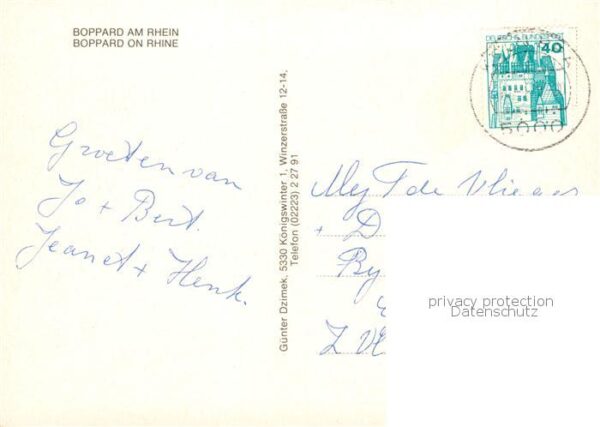 BOPPARD AM RHEIN
BOPPARD ON RHINE
Groeten van
Jo + Bert.
Jeanet + Henk.
Günter Dzimek, 5330 Königswinter 1, Winzerstraße 12-14,
Telefon (02223) 2 27 91
DEUTSCHE BUNDESPOST
40
5000
Mej T de Vlieger
+ D
privacy protection
Datenschutz